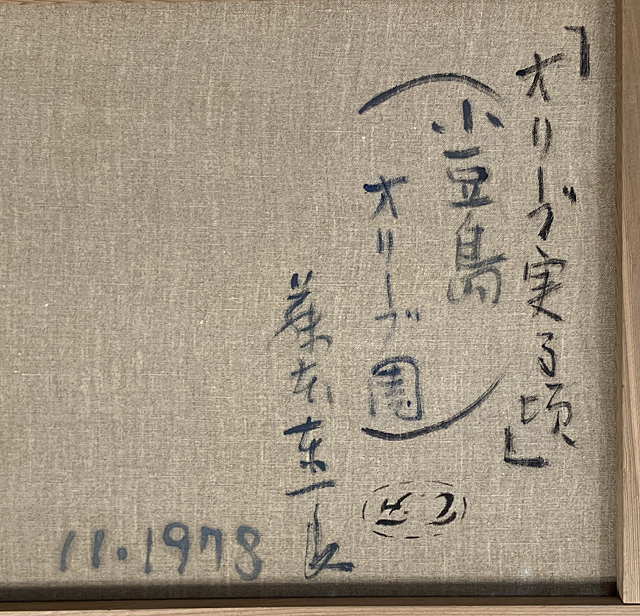 「オリーブ実る頃」
（小豆島
オリーブ園）
藤本東一良
11.1978